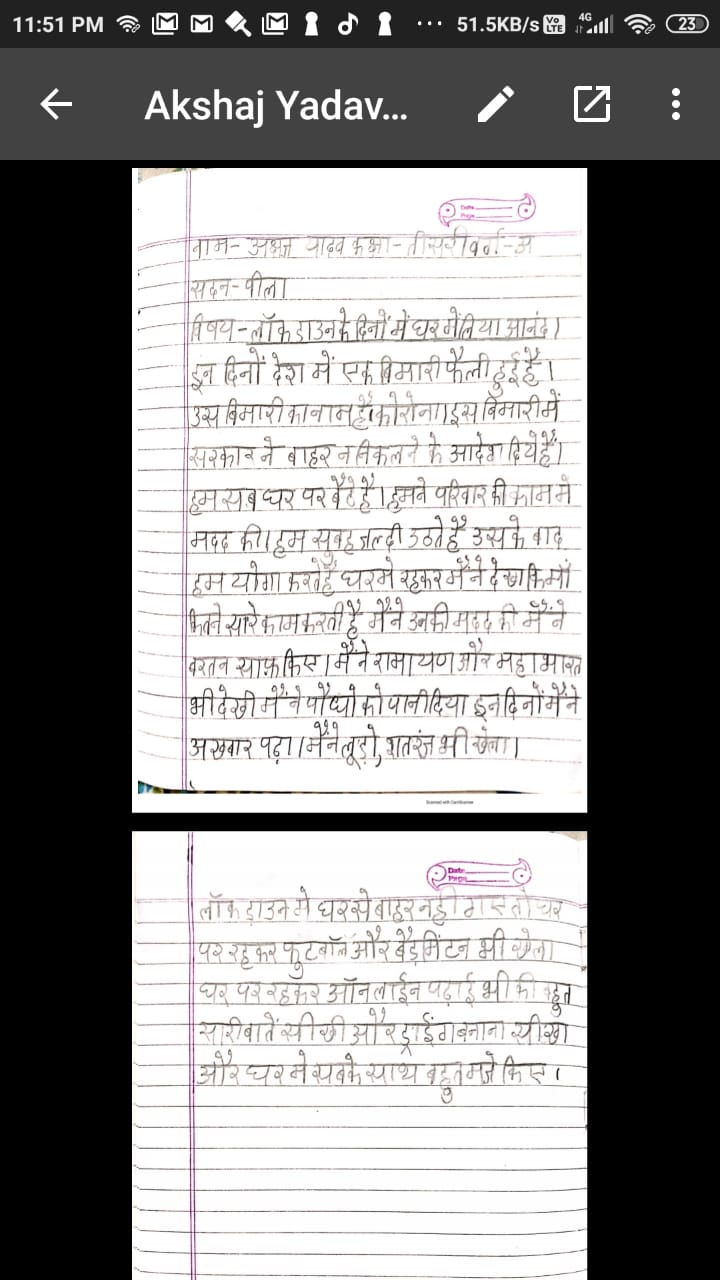 11:51 PM ... 51.5KB/s Vo LTE 4G 23
Akshaj Yadav...
Date
Page
नाम- यादव कक्षा- तीसरी वर्ग-अ
सदन-पीला
विषय-लॉकडाउन के दिनों में घर में लिया आनंद।
इन दिनों देश में एक बिमारी फैली हुई है।
उस बिमारी का नाम है कोरोना। इस बिमारी में
सरकार ने बाहर न निकलने के आदेश दिये हैं।
हम सब घर पर बैठे है। हमने परिवार की काम मे
मदद की। हम सुबह जल्दी उठते हैं उसके बाद
हम योगा करते हैं घर मे रहकर मैंने देखा कि माँ
कितने सारे काम करती हैं मैंने उनकी मदद की मैंने
बरतन साफ़ किए। मैंने रामायण और महाभारत
भी देखी मैंने पौधो को पानी दिया इन दिनों मैंने
अखबार पढ़ा। मैंने लूडो, शतरंज भी खेला।
Scanned with CamScanner
Date
Page
लॉकडाउन मे घर से बाहर नही गए तो घर
पर रहकर फुटबॉल और बैडमिंटन भी खेला
घर पर रहकर ऑनलाईन पढ़ाई भी की बहुत
सारी बातें सीखी और ड्राईंग बनाना सीखा
और घर मे सबके साथ बहुत मजे किए।